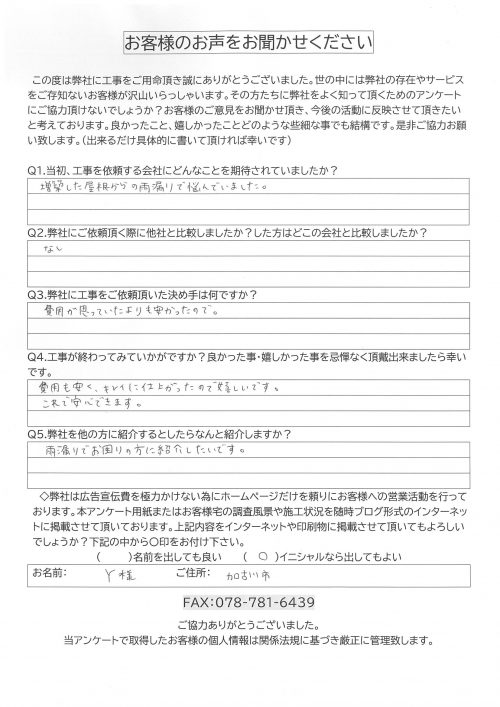 お客様のお声をお聞かせください
この度は弊社に工事をご用命頂き誠にありがとうございました。世の中には弊社の存在やサービス
をご存知ないお客様が沢山いらっしゃいます。その方たちに弊社をよく知って頂くためのアンケート
にご協力頂けないでしょうか?お客様のご意見をお聞かせ頂き、今後の活動に反映させて頂きたい
と考えております。良かったこと、嬉しかったことどのような些細な事でも結構です。是非ご協力お願
い致します。(出来るだけ具体的に書いて頂ければ幸いです)
Q1.当初、工事を依頼する会社にどんなことを期待されていましたか?
増築した屋根からの雨漏りで悩んでいました。
Q2.弊社にご依頼頂く際に他社と比較しましたか?した方はどこの会社と比較しましたか?
なし
Q3.弊社に工事をご依頼頂いた決め手は何ですか?
費用が思っていたよりも安かったので。
Q4.工事が終わってみていかがですか?良かった事・嬉しかった事を忌憚なく頂戴出来ましたら幸い
です。
費用も安く、キレイに仕上がったので嬉しいです。
これで安心できます。
Q5.弊社を他の方に紹介するとしたらなんと紹介しますか?
雨漏りでお困りの方に紹介したいです。
◇弊社は広告宣伝費を極力かけない為にホームページだけを頼りにお客様への営業活動を行って
おります。本アンケート用紙またはお客様宅の調査風景や施工状況を随時ブログ形式のインターネッ
トに掲載させて頂いております。上記内容をインターネットや印刷物に掲載させて頂いてもよろしい
でしょうか?下記の中から〇印をお付け下さい。
( )名前を出しても良い ( 〇 )イニシャルなら出してもよい
お名前: Y様 ご住所: 加古川市
FAX:078-781-6439
ご協力ありがとうございました。
当アンケートで取得したお客様の個人情報は関係法規に基づき厳正に管理致します。